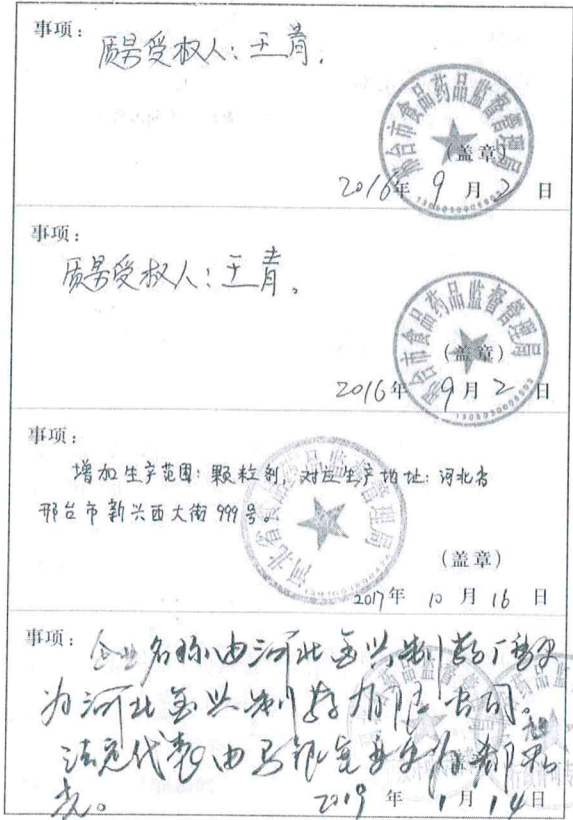 事项：
质量受权人：王青.
邢台市食品药品监督管理局
（盖章）
2016年 9 月 2 日
事项：
质量受权人：王青。
邢台市食品药品监督管理局
（盖章）
2016年 9 月 2 日
事项：
增加生产范围：颗粒剂，对应生产地址：河北省
邢台市新兴西大街999号。
河北省食品药品监督管理局
（盖章）
2017年 10 月 16 日
事项：
企业名称由河北金兴制药厂变更
为河北金兴制药有限公司。
法定代表由马银宽变更为郝
2019 年 1 月 14 日